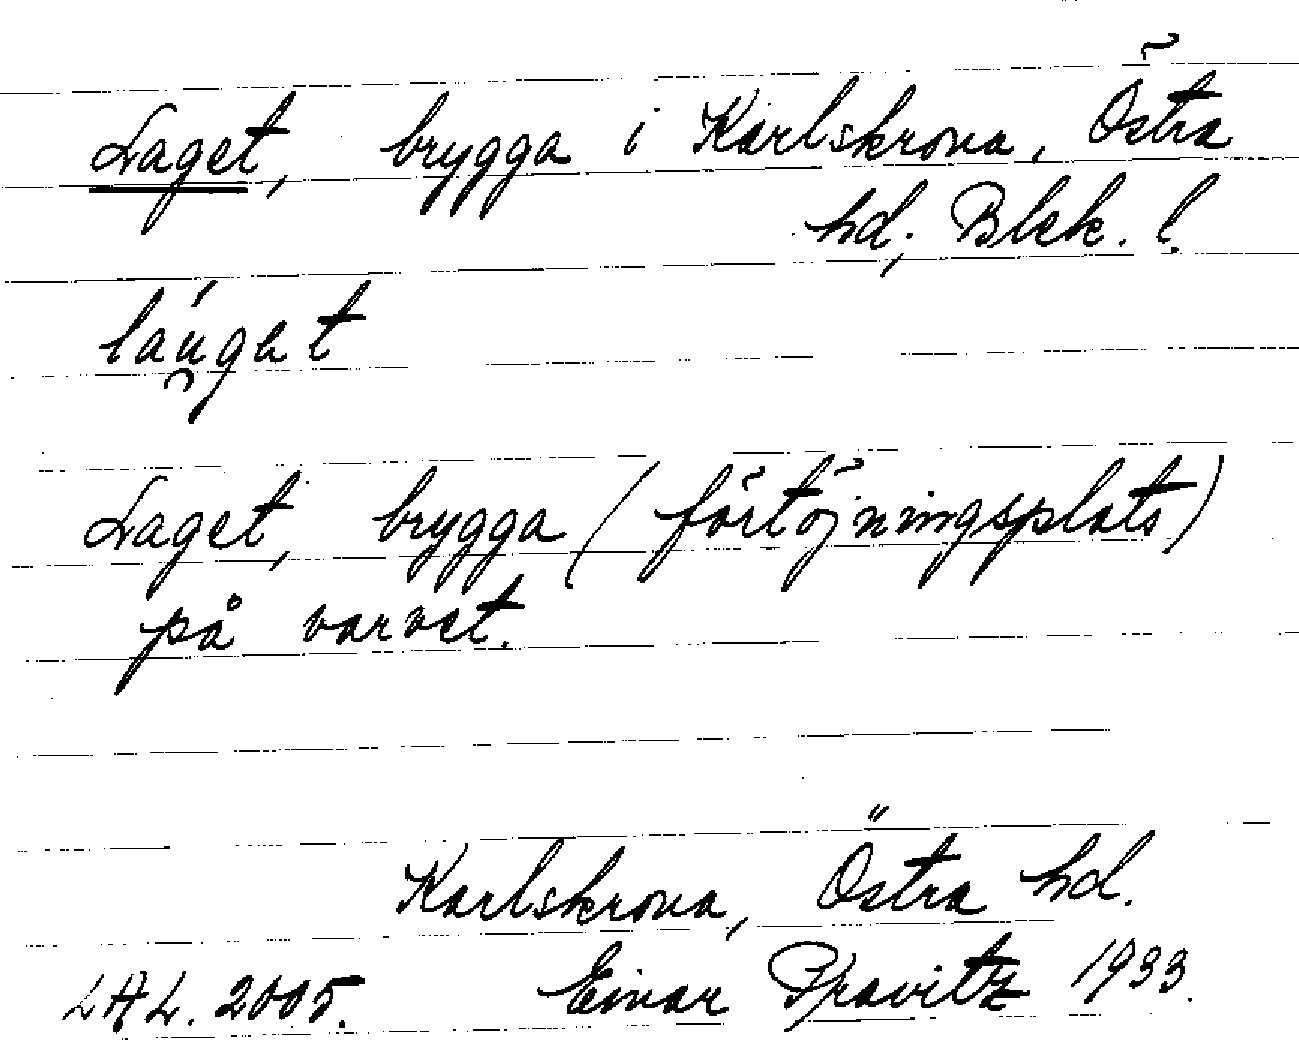 Laget, brygga i Karlskrona, Östra
hd; Blek. l.
láu̯gət
Laget, brygga (förtöjningsplats)
på varvet.
Karlskrona, Östra hd.
LAL. 2005. Einar Kravitz 1933.